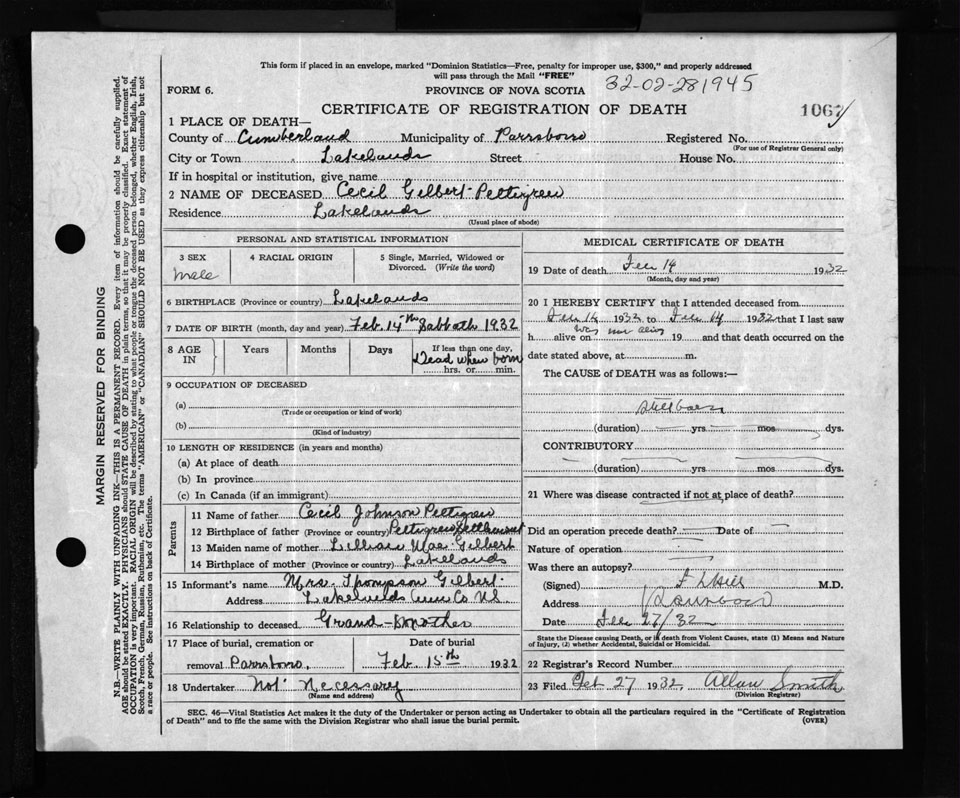 This form if placed in an envelope, marked "Dominion Statistics—Free, penalty for improper use, $300," and properly addressed
will pass through the Mail "FREE"
FORM 6.
PROVINCE OF NOVA SCOTIA
32-02-281945
CERTIFICATE OF REGISTRATION OF DEATH
1067
1 PLACE OF DEATH—
County of Cumberland Municipality of Parrsboro Registered No.
(For use of Registrar General only)
City or Town Lakelands Street House No.
If in hospital or institution, give name
2 NAME OF DECEASED Cecil Gilbert Pettigrew
Residence Lakelands
(Usual place of abode)
PERSONAL AND STATISTICAL INFORMATION
3 SEX
male
4 RACIAL ORIGIN
5 Single, Married, Widowed or
Divorced. (Write the word)
6 BIRTHPLACE (Province or country) Lakelands
7 DATE OF BIRTH (month, day and year) Feb. 14th Sabbath 1932
8 AGE
IN
Years
Months
Days
If less than one day,
Dead when born
hrs. or min.
9 OCCUPATION OF DECEASED
(a)
(Trade or occupation or kind of work)
(b)
(Kind of industry)
10 LENGTH OF RESIDENCE (in years and months)
(a) At place of death
(b) In province
(c) In Canada (if an immigrant)
Parents
11 Name of father Cecil Johnson Pettigrew
12 Birthplace of father (Province or country) Pettigrew Settlement
13 Maiden name of mother Lillian Mae Gilbert
14 Birthplace of mother (Province or country) Lakelands
15 Informant's name Mrs. Thompson Gilbert
Address Co N.S.
16 Relationship to deceased Grand-Mother
17 Place of burial, cremation or
removal Parrsboro,
Date of burial
Feb 15th 1932
18 Undertaker Not Necessary
(Name and address)
MEDICAL CERTIFICATE OF DEATH
19 Date of death Feb 14 1932
(Month, day and year)
20 I HEREBY CERTIFY that I attended deceased from
Feb 14 1932 to Feb 14 1932 that I last saw
h alive on was not alive 19 and that death occurred on the
date stated above, at m.
The CAUSE of DEATH was as follows:—
Stillborn
(duration) yrs mos dys.
CONTRIBUTORY
(duration) yrs mos dys.
21 Where was disease contracted if not at place of death?
Did an operation precede death? Date of
Nature of operation
Was there an autopsy?
(Signed) M.D.
Address
Date Feb 27/32
State the Disease causing Death, or in death from Violent Causes, state (1) Means and Nature
of Injury, (2) whether Accidental, Suicidal or Homicidal.
22 Registrar's Record Number
23 Filed Feb 27 1932, Allan Smith
(Division Registrar)
SEC. 46—Vital Statistics Act makes it the duty of the Undertaker or person acting as Undertaker to obtain all the particulars required in the "Certificate of Registration
of Death" and to file the same with the Division Registrar who shall issue the burial permit.
(OVER)
MARGIN RESERVED FOR BINDING
N.B.—WRITE PLAINLY WITH UNFADING INK—THIS IS A PERMANENT RECORD. Every item of information should be carefully supplied.
AGE should be stated EXACTLY. PHYSICIANS should STATE CAUSE OF DEATH in plain terms, so that it may be properly classified. Exact statement of
OCCUPATION is very important. RACIAL ORIGIN will be described by stating to what people or tongue the deceased person belonged, whether English, Irish,
Scotch, French, German, Russian, Ruthenian, etc. The terms "AMERICAN" or "CANADIAN" SHOULD NOT BE USED as they express citizenship but not
a race or people. See instructions on back of Certificate.